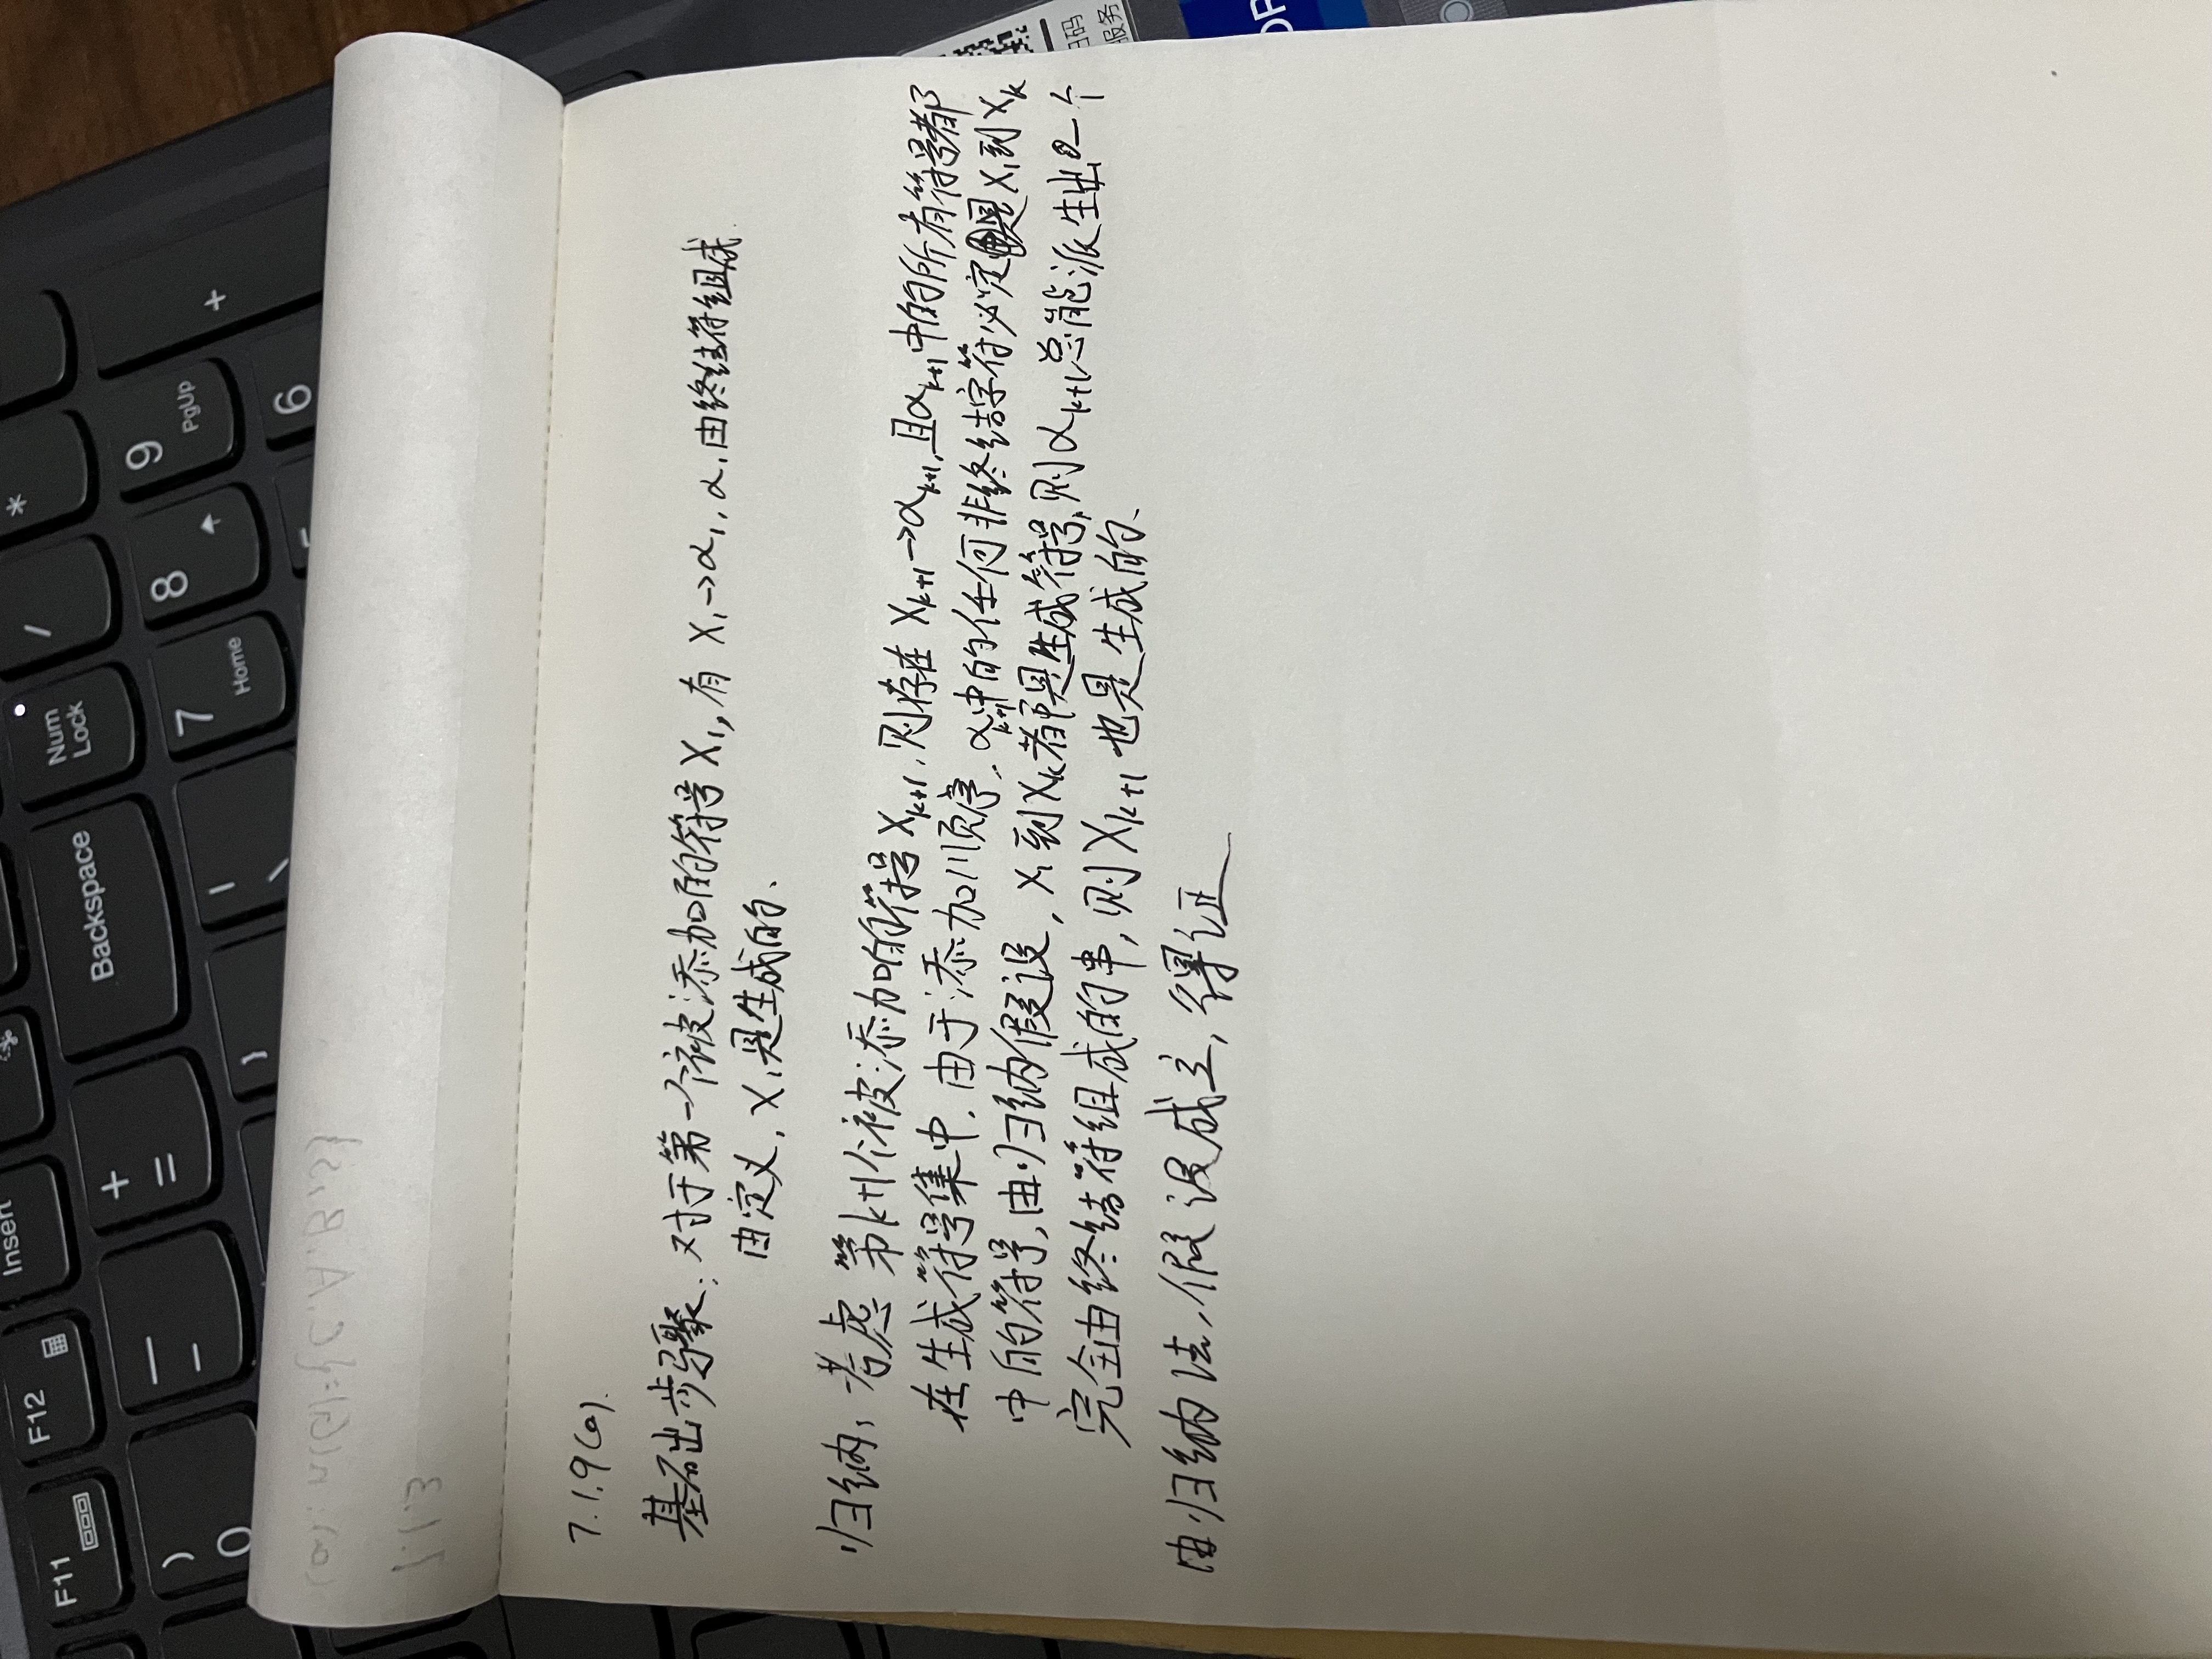 7.1.9(a).
基础步骤：对于第一个被添加的符号X₁，有 X₁→α₁，α₁由终结符组成.
由定义，X₁是生成的、
归纳：考虑 第k+1个被添加的符号X_{k+1}，则存在 X_{k+1}→α_{k+1}，且α_{k+1}中的所有符号都
在生成符号集中，由于添加顺序，α_{k+1}中的任何非终结字符必定是X₁到X_k
中的符号，由归纳假设，X₁到X_k都是生成符号，则α_{k+1}总能派生出一个
完全由终结符组成的串，则X_{k+1}也是生成的、
由归纳法，假设成立，得证
F11
F12
Insert
Backspace
Num
Lock
) 0
_ -
+ =
7 Home
8
9 PgUp
6
/
*
+
服务